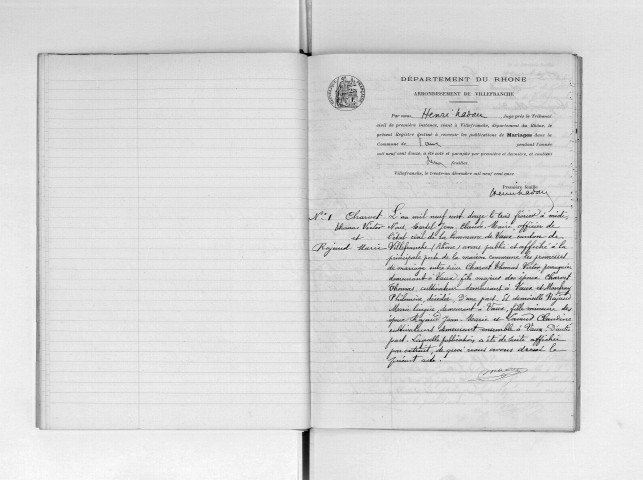 DÉPARTEMENT DU RHONE
ARRONDISSEMENT DE VILLEFRANCHE
Par nous Henri Juge près le Tribunal
civil de première instance, séant à Villefranche, département du Rhône, le
présent Registre destiné à recevoir les publications de Mariages dans la
Commune de Vaux pendant l'année
mil neuf cent douze, a été coté et paraphé par première et dernière, et contient
feuillets.
Villefranche, le trente-un décembre mil neuf cent onze
Première feuille
N° 1 Charvet
Thomas Victor
et
Rajaud Marie
L'an mil neuf cent douze le trois février à midi,
Nous, Jean Claude, Maire, officier de
l'état civil de la Commune de Vaux canton de
Villefranche (Rhône) avons publié et affiché à la
principale porte de la maison commune les promesses
de mariage entre sieur Charvet Thomas Victor
demeurant à Vaux, fils majeur des époux Charvet
Thomas, cultivateur demeurant à Vaux et
Philomène, décédée, D'une part. Et demoiselle Rajaud
Marie lingère, demeurant à Vaux, fille mineure des
époux Rajaud Jean Marie et Claudine
cultivateurs demeurant ensemble à Vaux D'autre
part. Laquelle publication a été de suite affichée
par extrait, de quoi nous avons dressé le
présent acte.